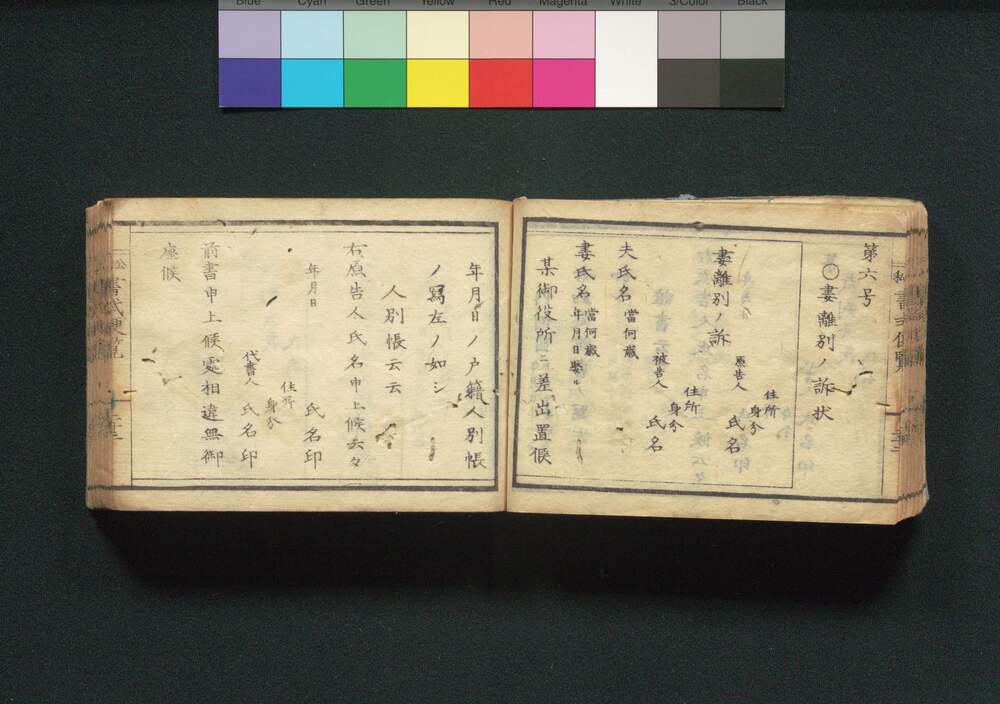 Blue Cyan Green Yellow Red Magenta White 3/Color Black
第六号
○妻離別ノ訴状
妻離別ノ訴
住所
身分
原告人 氏名
住所
身分
被告人 氏名
夫氏名 當何歳
妻氏名 當何歳
年月日娶ル
某御役所ニ差出置候
年月日ノ戸籍人別帳
ノ寫左ノ如シ
人別帳云云
右原告人氏名申上候云々
年月日 氏名印
住所
身分
代書人 氏名印
前書申上候處相違無御
座候